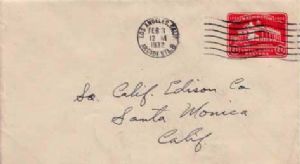 LOS ANGELES, CALIF.
FEB
12 M
1932
So. Calif. Edison Co
Santa Monica
Calif